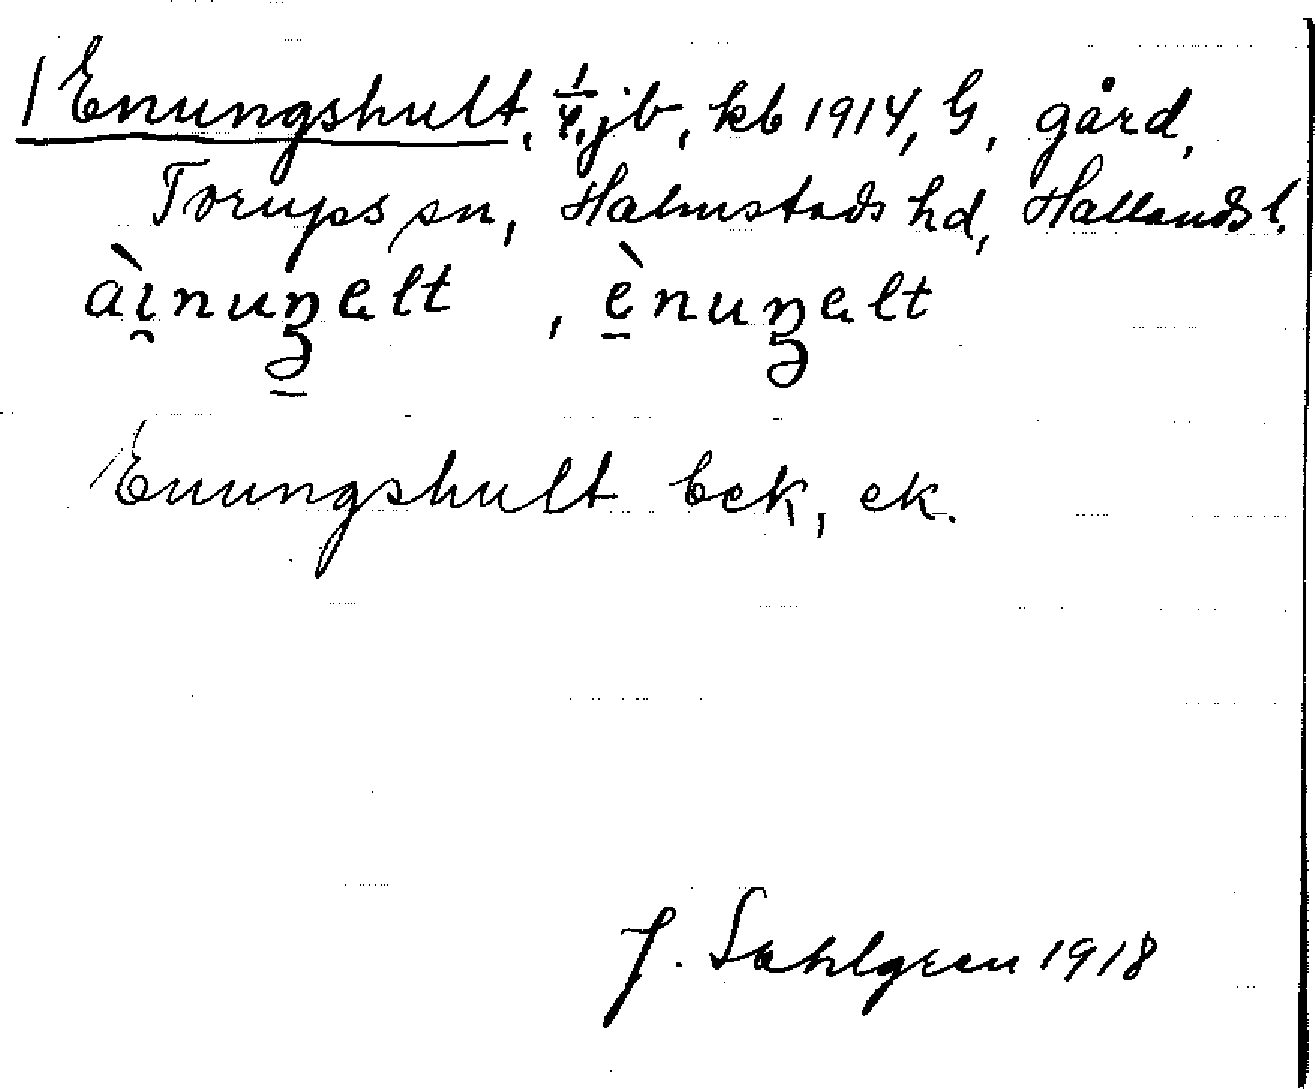 1 Enungshult, 1/4, jb, kb 1914, G, gård,
Torups sn, Halmstads hd, Hallands l.
àı̯nuŋəlt, è̱nuŋəlt
Enungshult bek, ek.
J. Sahlgren 1918